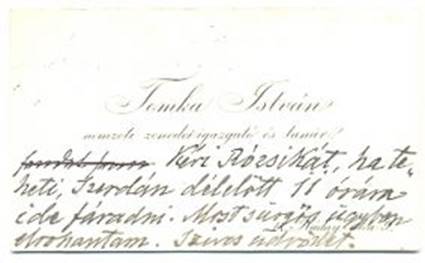 Tomka István
nemzeti zenedei igazgató és tanár
Kéri Rózsikát, ha te-
heti, Szerdán délelőtt 11 órára
ide fáradni. Most sürgős ügyben
elrohantam. Szives üdvözlet.